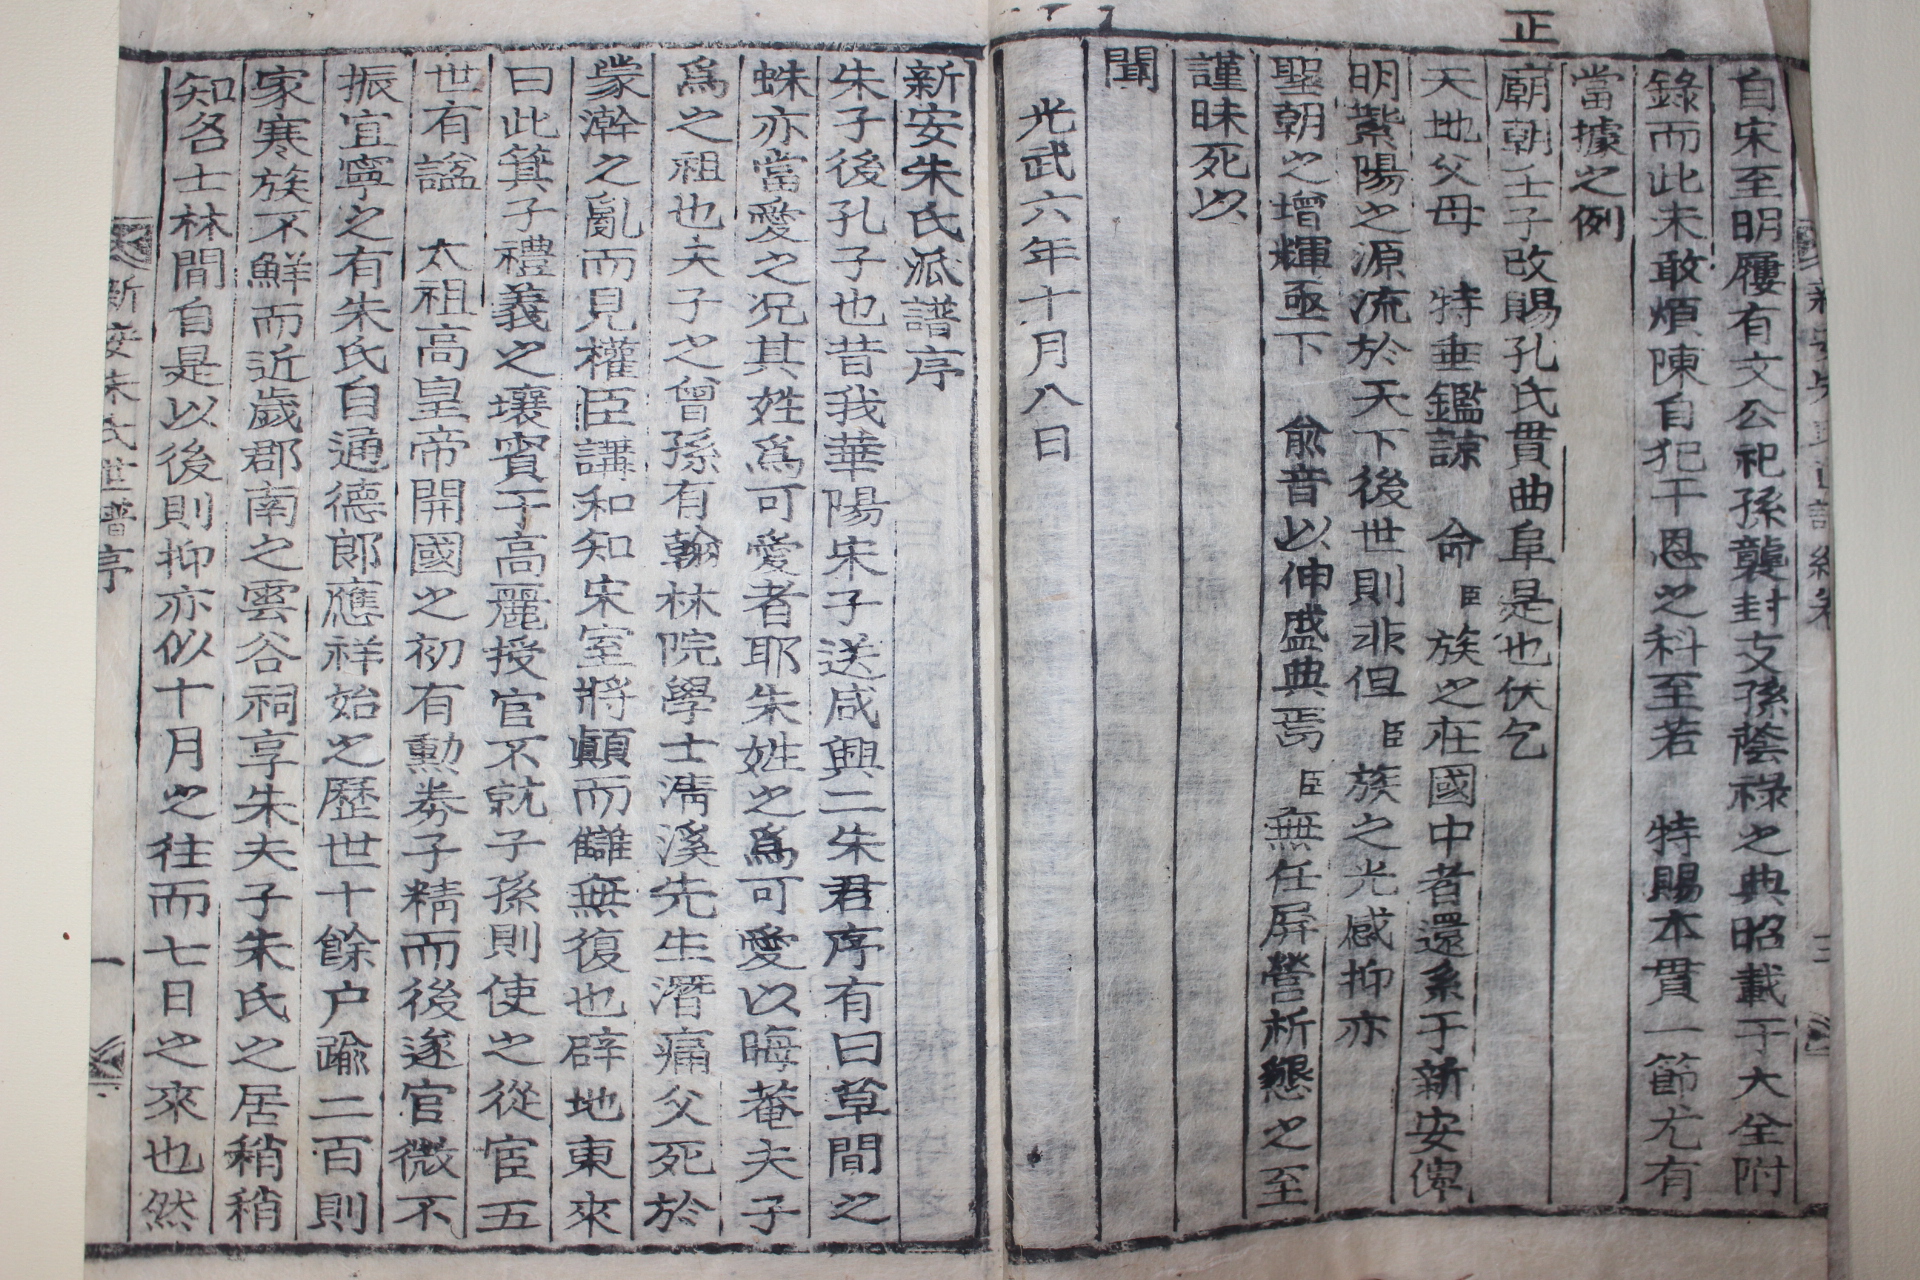 自宋至明屢有文公祀孫襲封支孫蔭祿之典昭載于大全附
錄而此未敢煩陳自犯干恩之科至若 特賜本貫一節尤有
當據之例
正
廟朝壬子改賜孔氏貫曲阜是也伏乞
天地父母 特垂鑑諒 命臣族之在國中者還系于新安俾
明紫陽之源流於天下後世則非但臣族之光感抑亦
聖朝之增輝亟下 兪音以伸盛典焉臣無任屏營祈懇之至
謹昧死以
聞
光武六年十月八日
新安朱氏派譜序
朱子後孔子也昔我華陽宋子送咸興二朱君序有曰草間之
蛛亦當愛之況其姓爲可愛者耶朱姓之爲可愛以晦菴夫子
爲之祖也夫子之曾孫有翰林院學士淸溪先生潛痛父死於
蒙瀚之亂而見權臣講和知宋室將顚而讎無復也辟地東來
曰此箕子禮義之壤賓于高麗授官不就子孫則使之從宦五
世有諡 太祖高皇帝開國之初有勳劵子精而後遂官微不
振宜寧之有朱氏自通德郎應祥始之歷世十餘户踰二百則
家寒族不鮮而近歲郡南之雲谷祠享朱夫子朱氏之居稍稍
知名士林間自是以後則抑亦似十月之往而七日之來也然
新安朱氏世譜序
一